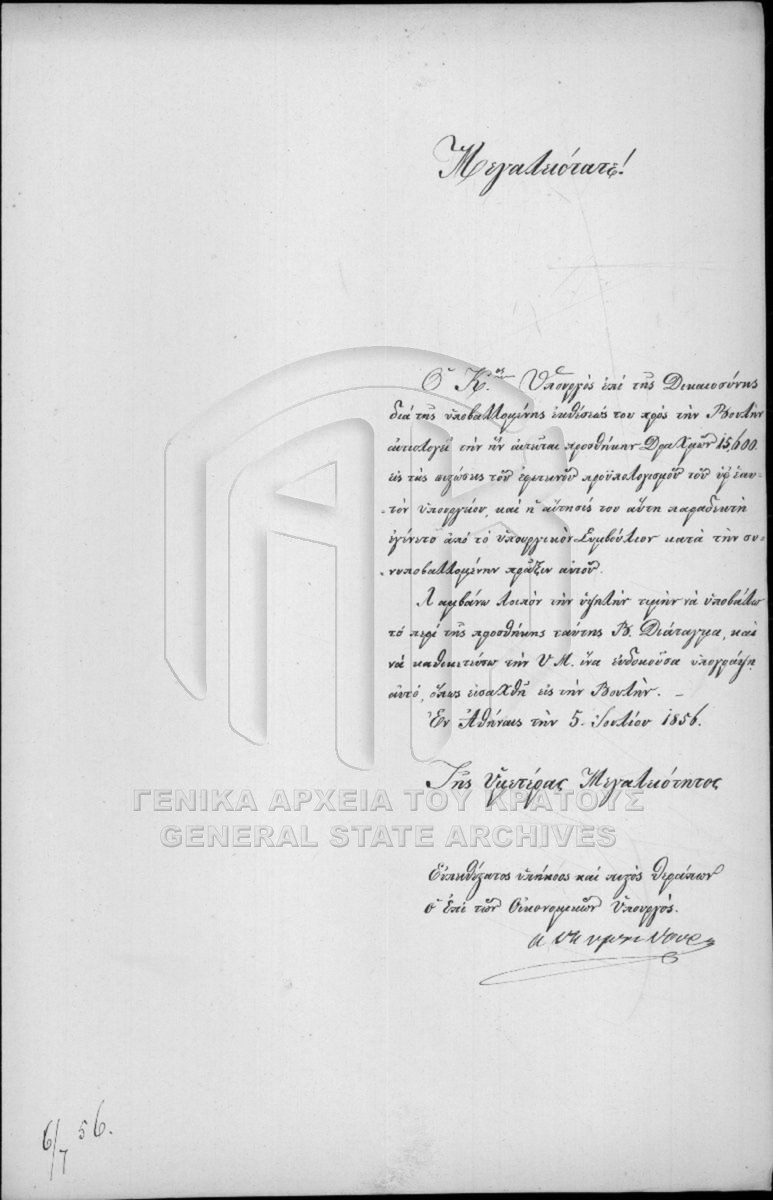 Μεγαλειότατε!
Ὁ Κ.ος Ὑπουργὸς ἐπὶ τῆς Δικαιοσύνης
διὰ τῆς ὑποβαλλομένης ἐκθέσεώς του πρὸς τὴν Βουλὴν
αἰτιολογεῖ τὴν ἣν αἰτεῖται προσθήκην Δραχμῶν 15,600
εἰς τὰς πιστώσεις τοῦ ἐφετεινοῦ προϋπολογισμοῦ τοῦ ὑφ' ἑαυ-
-τὸν ὑπουργείου, καὶ ἡ αἴτησίς του αὕτη παραδεκτὴ
ἐγένετο ἀπὸ τὸ ὑπουργικὸν Συμβούλιον κατὰ τὴν συ-
-νυποβαλλομένην πρᾶξιν αὐτοῦ.
Λαμβάνω λοιπὸν τὴν ὑψηλὴν τιμὴν νὰ ὑποβάλω
τὸ περὶ τῆς προσθήκης ταύτης Β. Διάταγμα, καὶ
νὰ καθικετεύσω τὴν Υ.Μ. ἵνα εὐδοκοῦσα ὑπογράψῃ
αὐτὸ, ὅπως εἰσαχθῇ εἰς τὴν Βουλήν. _
Ἐν Ἀθήναις τὴν 5. Ἰουλίου 1856.
Τῆς Ὑμετέρας Μεγαλειότητος
ΓΕΝΙΚΑ ΑΡΧΕΙΑ ΤΟΥ ΚΡΑΤΟΥΣ
GENERAL STATE ARCHIVES
Εὐπειθέστατος ὑπήκοος καὶ πιστὸς θεράπων
ὁ ἐπὶ τῶν Οἰκονομικῶν Ὑπουργός.
6/7 56.